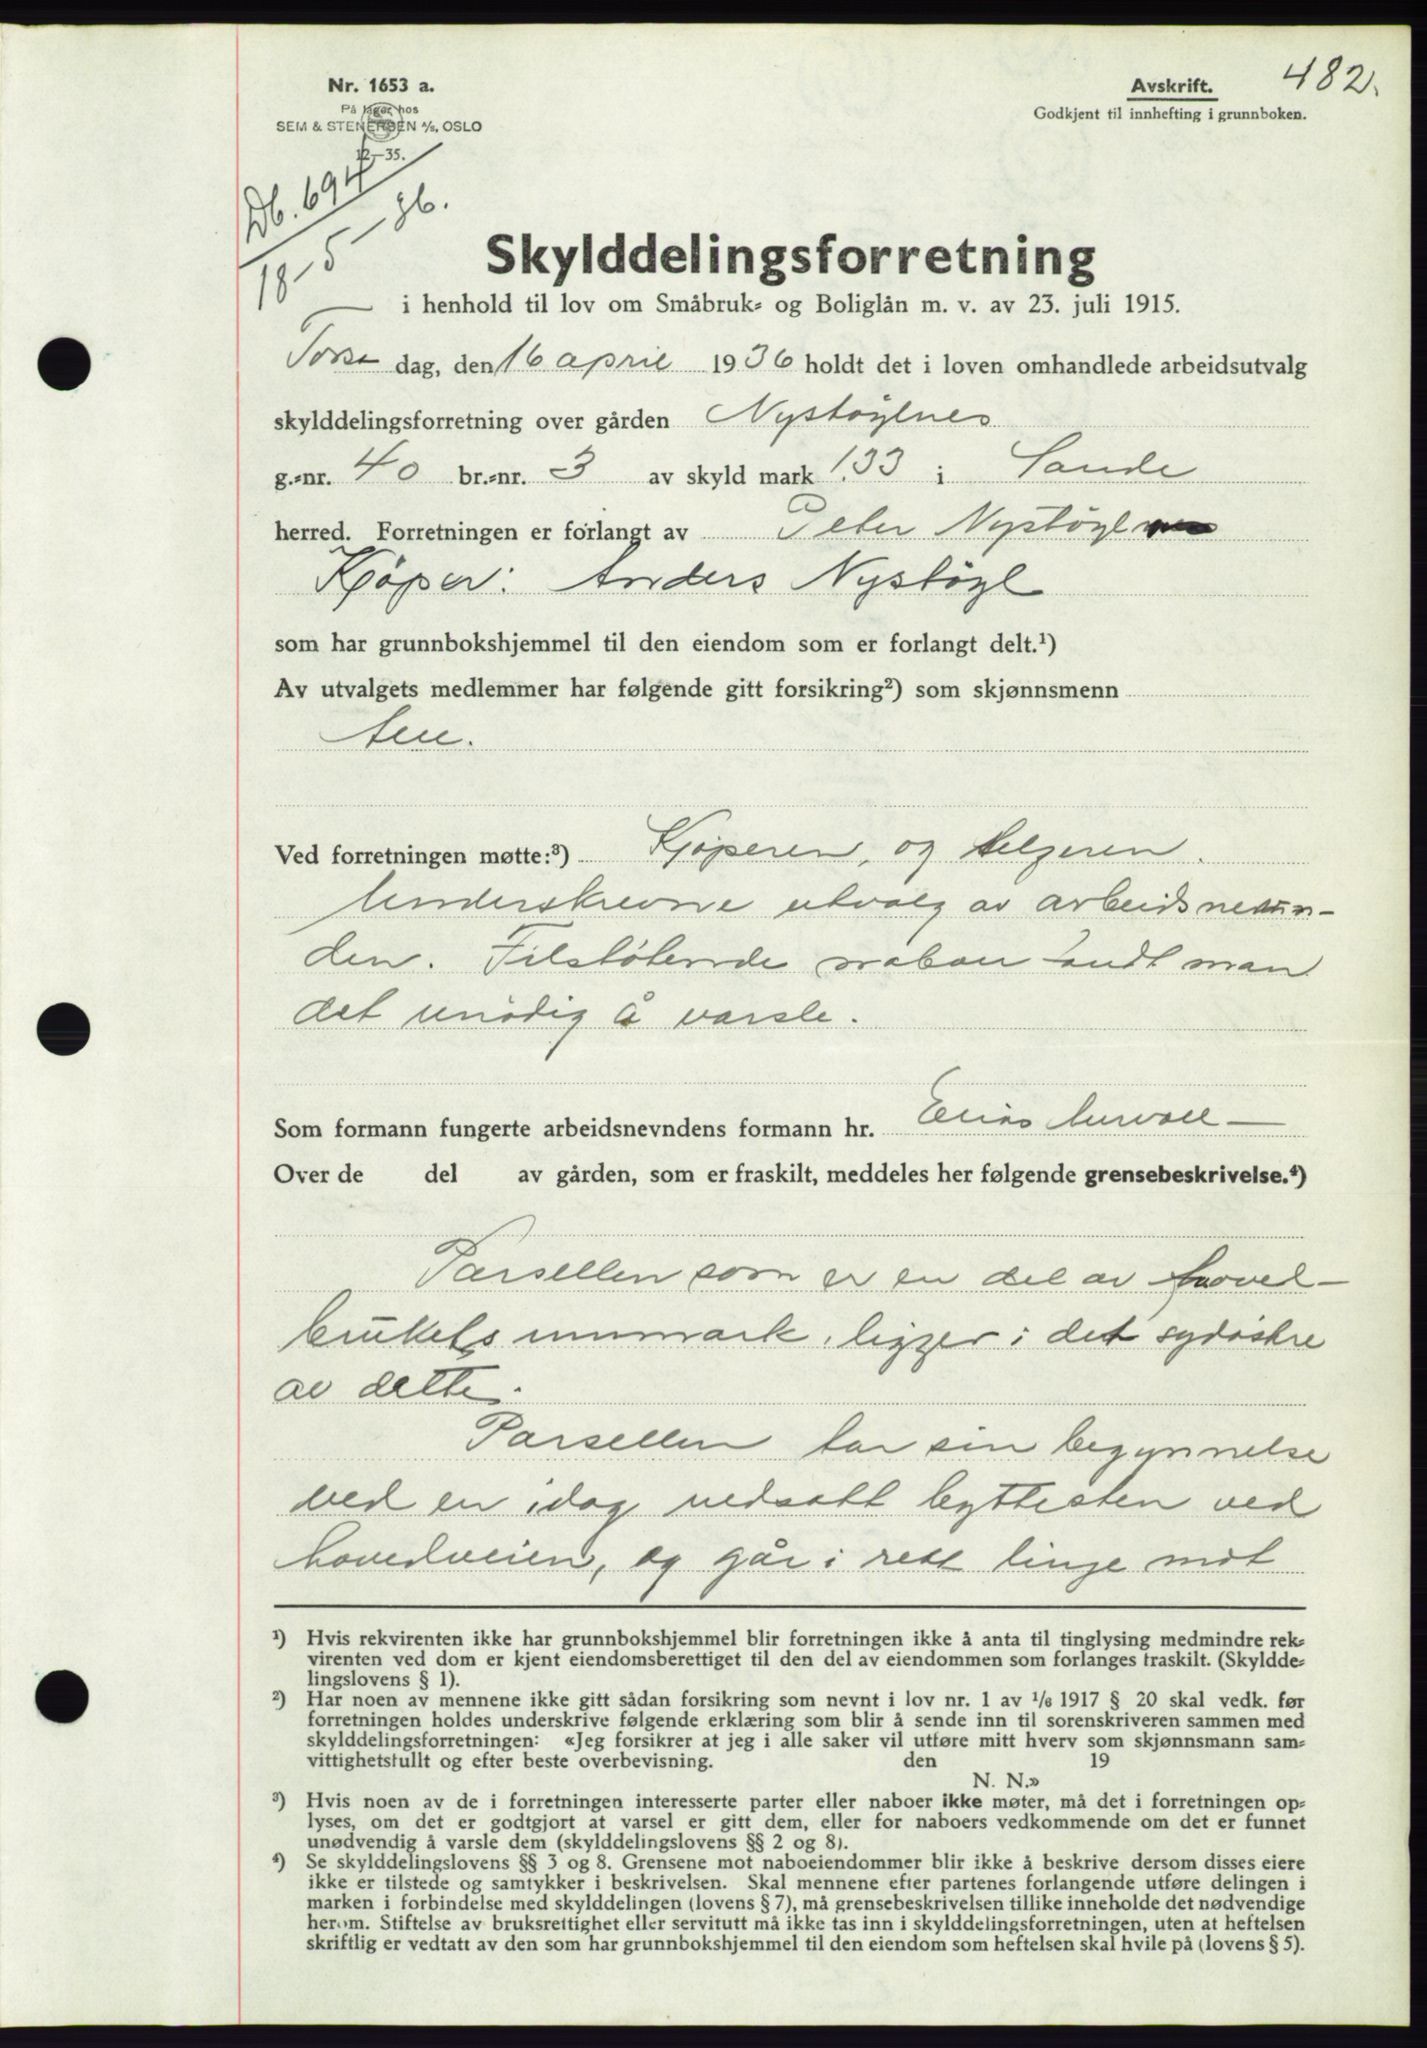 482.
Nr. 1653 a.
På lager hos
SEM & STENERSEN A/S, OSLO
12—35.
Avskrift.
Godkjent til innhefting i grunnboken.
Db. 694
18-5-36.
Skylddelingsforretning
i henhold til lov om Småbruk= og Boliglån m. v. av 23. juli 1915.
Tors dag, den 16 april 1936 holdt det i loven omhandlede arbeidsutvalg
skylddelingsforretning over gården Nystøylnes
g.=nr. 40 br.=nr. 3 av skyld mark 1.33 i Sande
herred. Forretningen er forlangt av Peter Nystøyl
Kjøper: Anders Nystøyl
som har grunnbokshjemmel til den eiendom som er forlangt delt.¹)
Av utvalgets medlemmer har følgende gitt forsikring²) som skjønnsmenn
Ale.
Ved forretningen møtte:³) Kjøperen, og selgeren.
Underskrevne utvalg av arbeidsnevn-
den. Tilstøtende naboer fandt man
det unødig å varsle.
Som formann fungerte arbeidsnevndens formann hr. Elias
Over de del av gården, som er fraskilt, meddeles her følgende grensebeskrivelse.⁴)
Parsellen som er en del av hoved-
brukets innmark, ligger i det sydøstre
av dette.
Parsellen tar sin begynnelse
ved en idag nedsatt byttesten ved
hovedveien, og går i rett linje mot
¹) Hvis rekvirenten ikke har grunnbokshjemmel blir forretningen ikke å anta til tinglysing medmindre rek=
virenten ved dom er kjent eiendomsberettiget til den del av eiendommen som forlanges fraskilt. (Skyldde=
lingslovens § 1).
²) Har noen av mennene ikke gitt sådan forsikring som nevnt i lov nr. 1 av 1/6 1917 § 20 skal vedk. før
forretningen holdes underskrive følgende erklæring som blir å sende inn til sorenskriveren sammen med
skylddelingsforretningen: «Jeg forsikrer at jeg i alle saker vil utføre mitt hverv som skjønnsmann sam=
vittighetsfullt og efter beste overbevisning. den 19
N. N.»
³) Hvis noen av de i forretningen interesserte parter eller naboer ikke møter, må det i forretningen op=
lyses, om det er godtgjort at varsel er gitt dem, eller for naboers vedkommende om det er funnet
unødvendig å varsle dem (skylddelingslovens §§ 2 og 8).
⁴) Se skylddelingslovens §§ 3 og 8. Grensene mot naboeiendommer blir ikke å beskrive dersom disses eiere
ikke er tilstede og samtykker i beskrivelsen. Skal mennene efter partenes forlangende utføre delingen i
marken i forbindelse med skylddelingen (lovens § 7), må grensebeskrivelsen tillike inneholde det nødvendige
herom. Stiftelse av bruksrettighet eller servitutt må ikke tas inn i skylddelingsforretningen, uten at heftelsen
skriftlig er vedtatt av den som har grunnbokshjemmel til den eiendom som heftelsen skal hvile på (lovens § 5).